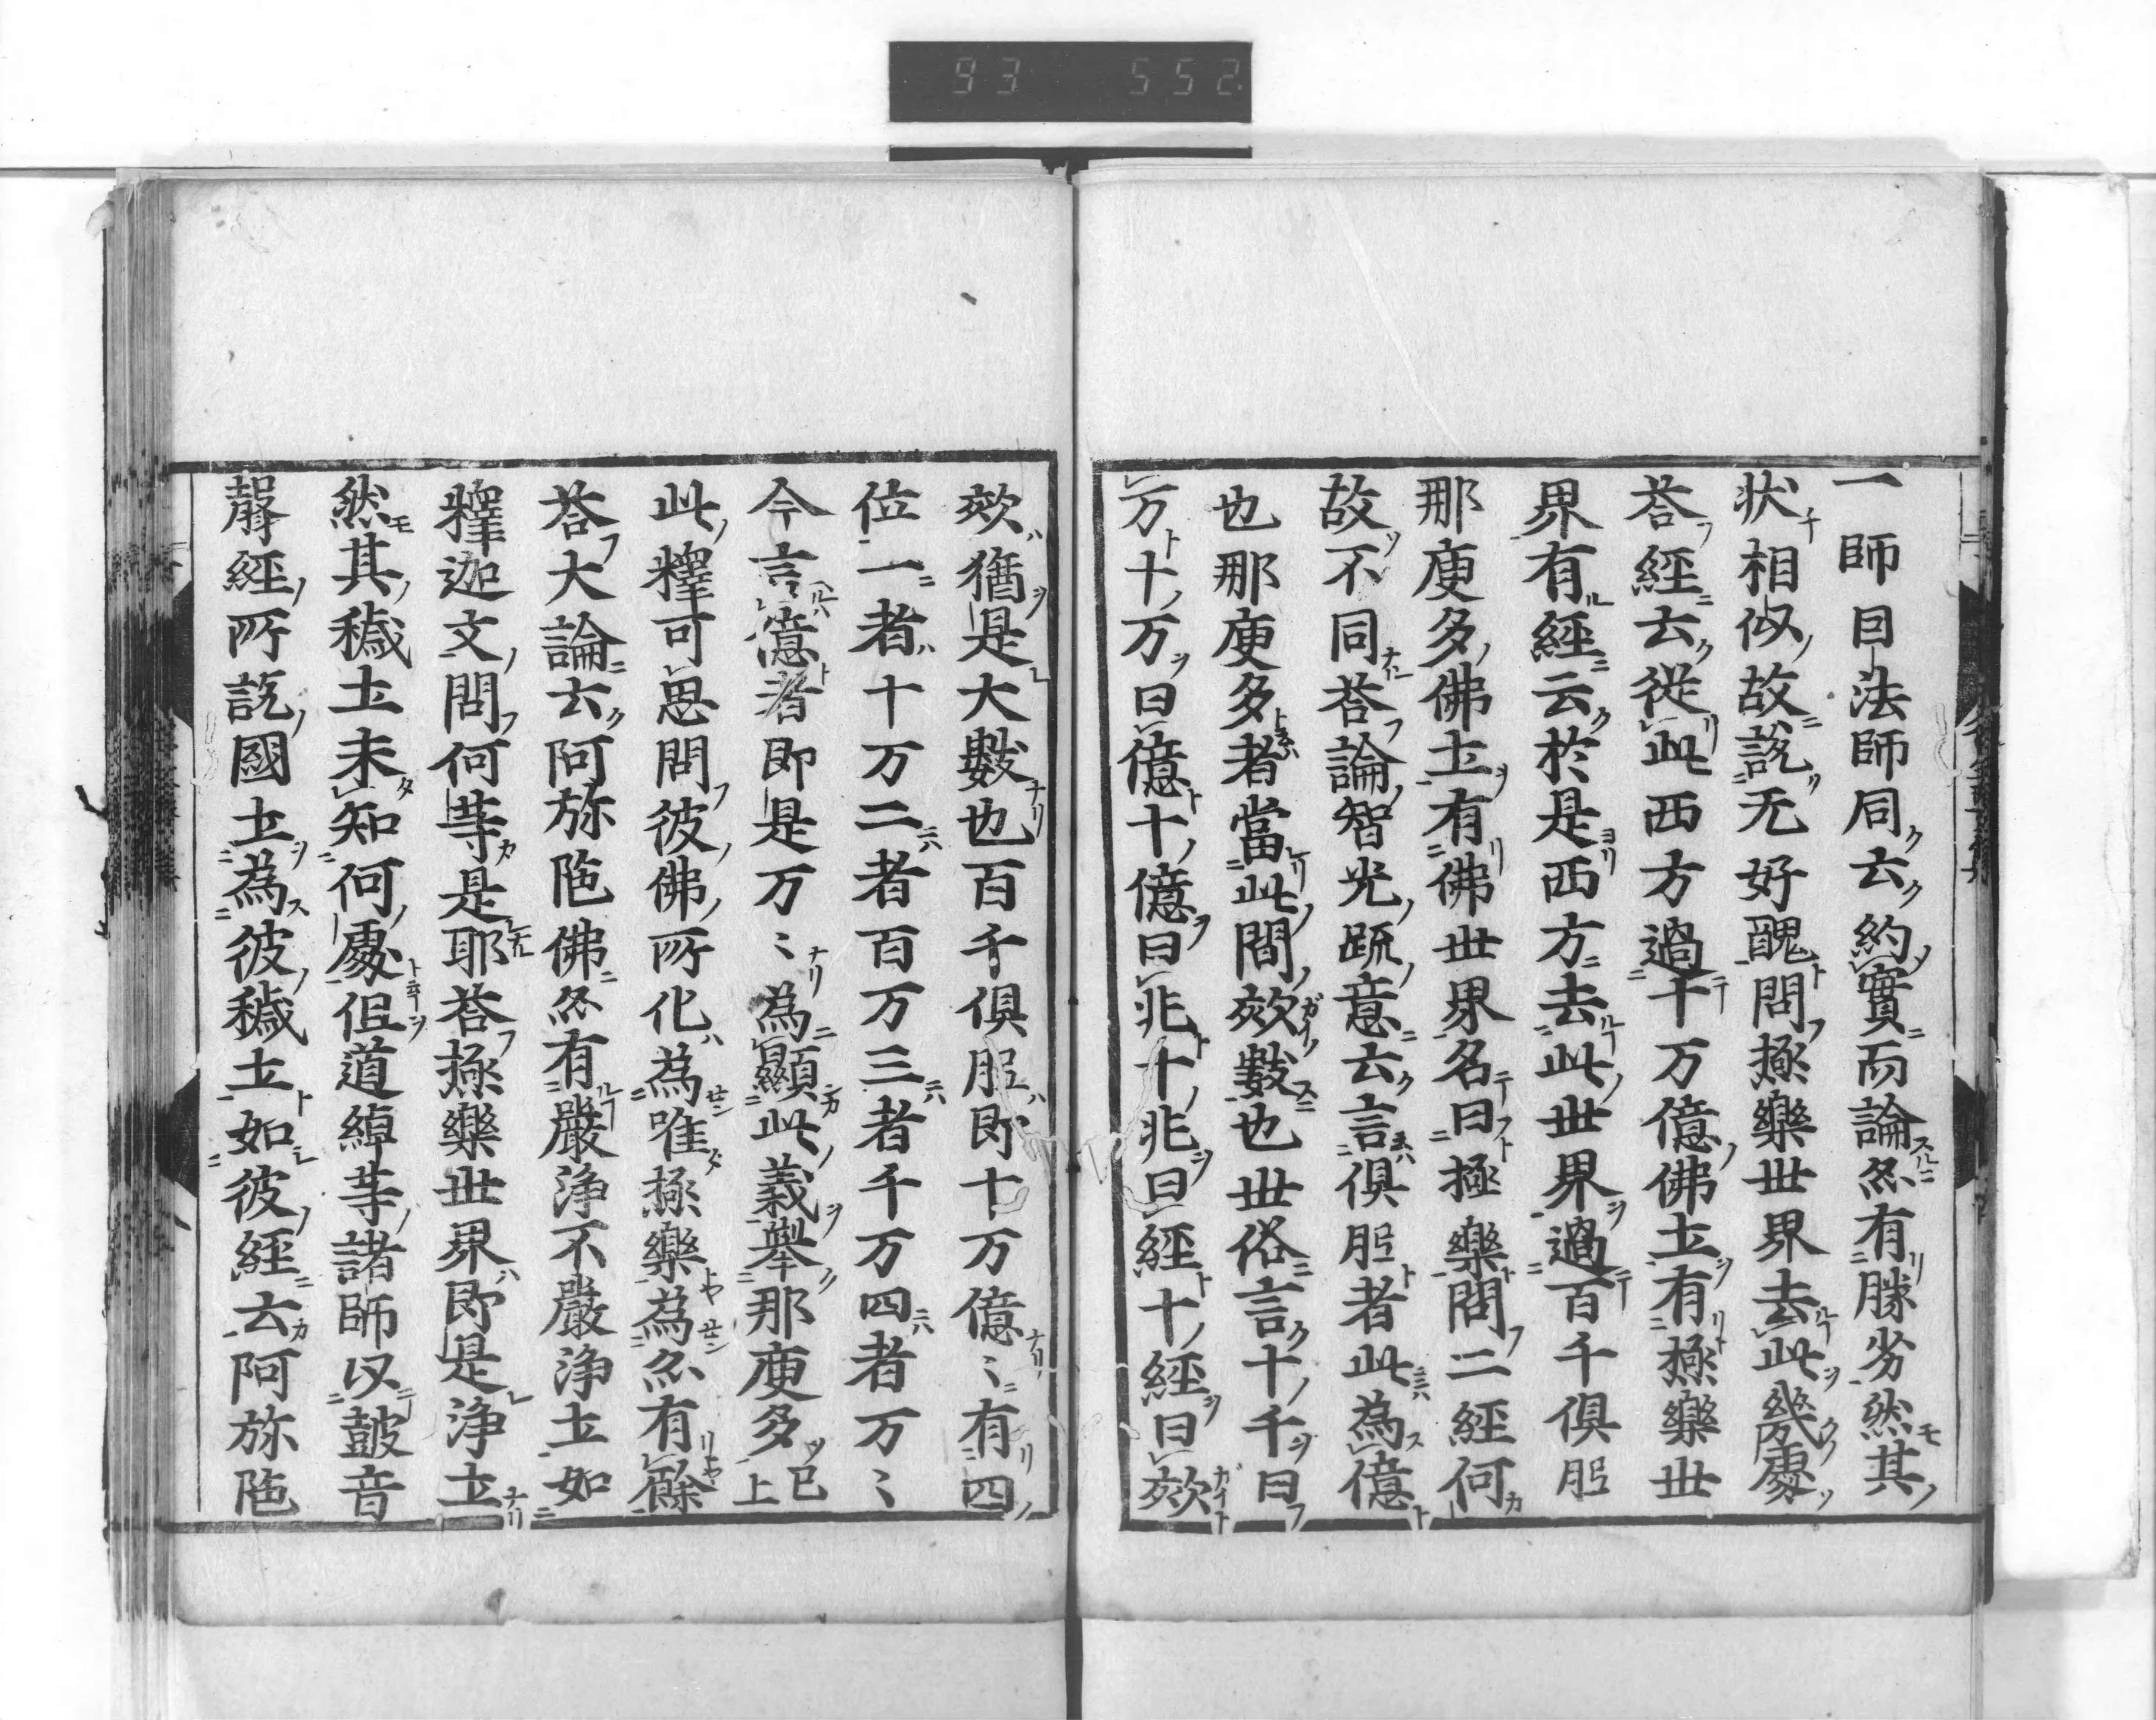 93 552
一師因法師同云約實而論亦有勝劣然其
状相似故説无好醜問極樂世界去此幾處
荅經云從此西方過十万億佛土有極樂世
界有經云於是西方去此世界過百千俱胝
那庾多佛土有佛世界名曰極樂問二經何
故不同荅論智光䟽意云言俱胝者此為億
也那庾多者當此間姟數也世俗言十千曰
万十万曰億十億曰兆十兆曰經十經曰姟
姟猶是大數也百千俱胝即十万億〻有四
位一者十万二者百万三者千万四者万〻
今言億者即是万〻為顯此義舉那庾多已上
此釋可思問彼佛所化為唯極樂為亦有餘
荅大論云阿弥陁佛亦有嚴浄不嚴浄土如
釋迦文問何等是耶荅極樂世界即是浄土
然其穢土未知何處但道綽等諸師以鼓音
聲經所説國土為彼穢土如彼經云阿弥陁